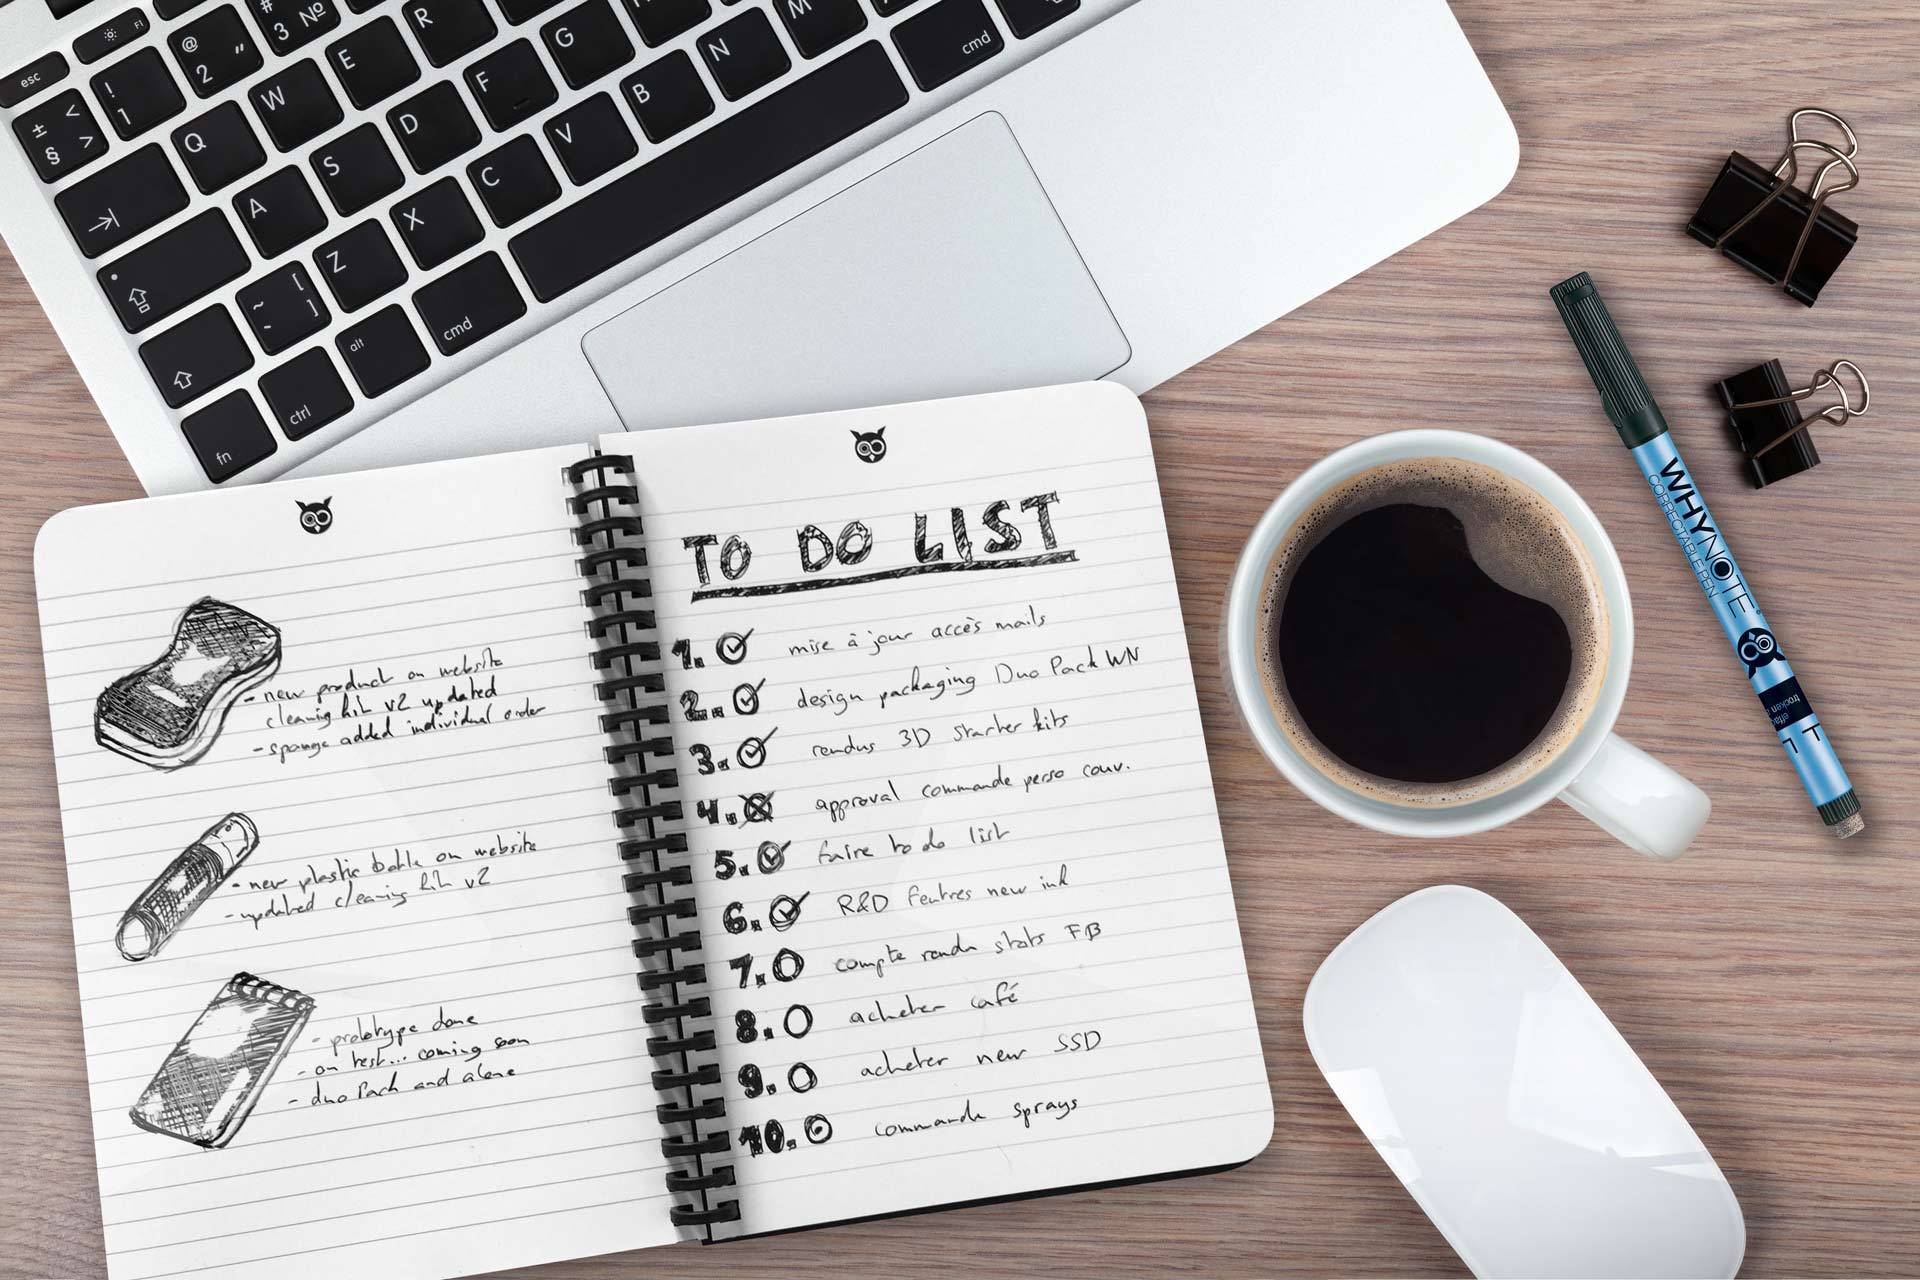 esc
F1
! 1
@ 2 "
# 3 №
± § < >
Q W E R
A S D F G
Z X C V B N M
~ [ ]
fn ctrl alt cmd
cmd
- new product on website
cleaning kit v2 updated
- sponge added individual order
- new plastic bottle on website
- updated cleaning kit v2
- prototype done
- on test... coming soon
- duo Pack and alone
TO DO LIST
1. mise à jour accès mails
2. design packaging Duo Pack WN
3. rendus 3D starter kits
4. approval commande perso couv.
5. faire to do list
6. R&D feutres new ink
7. compte rendu stats FB
8. acheter café
9. acheter new SSD
10. commande sprays
WHYNOTE
CORRECTABLE PEN
trocken
effa